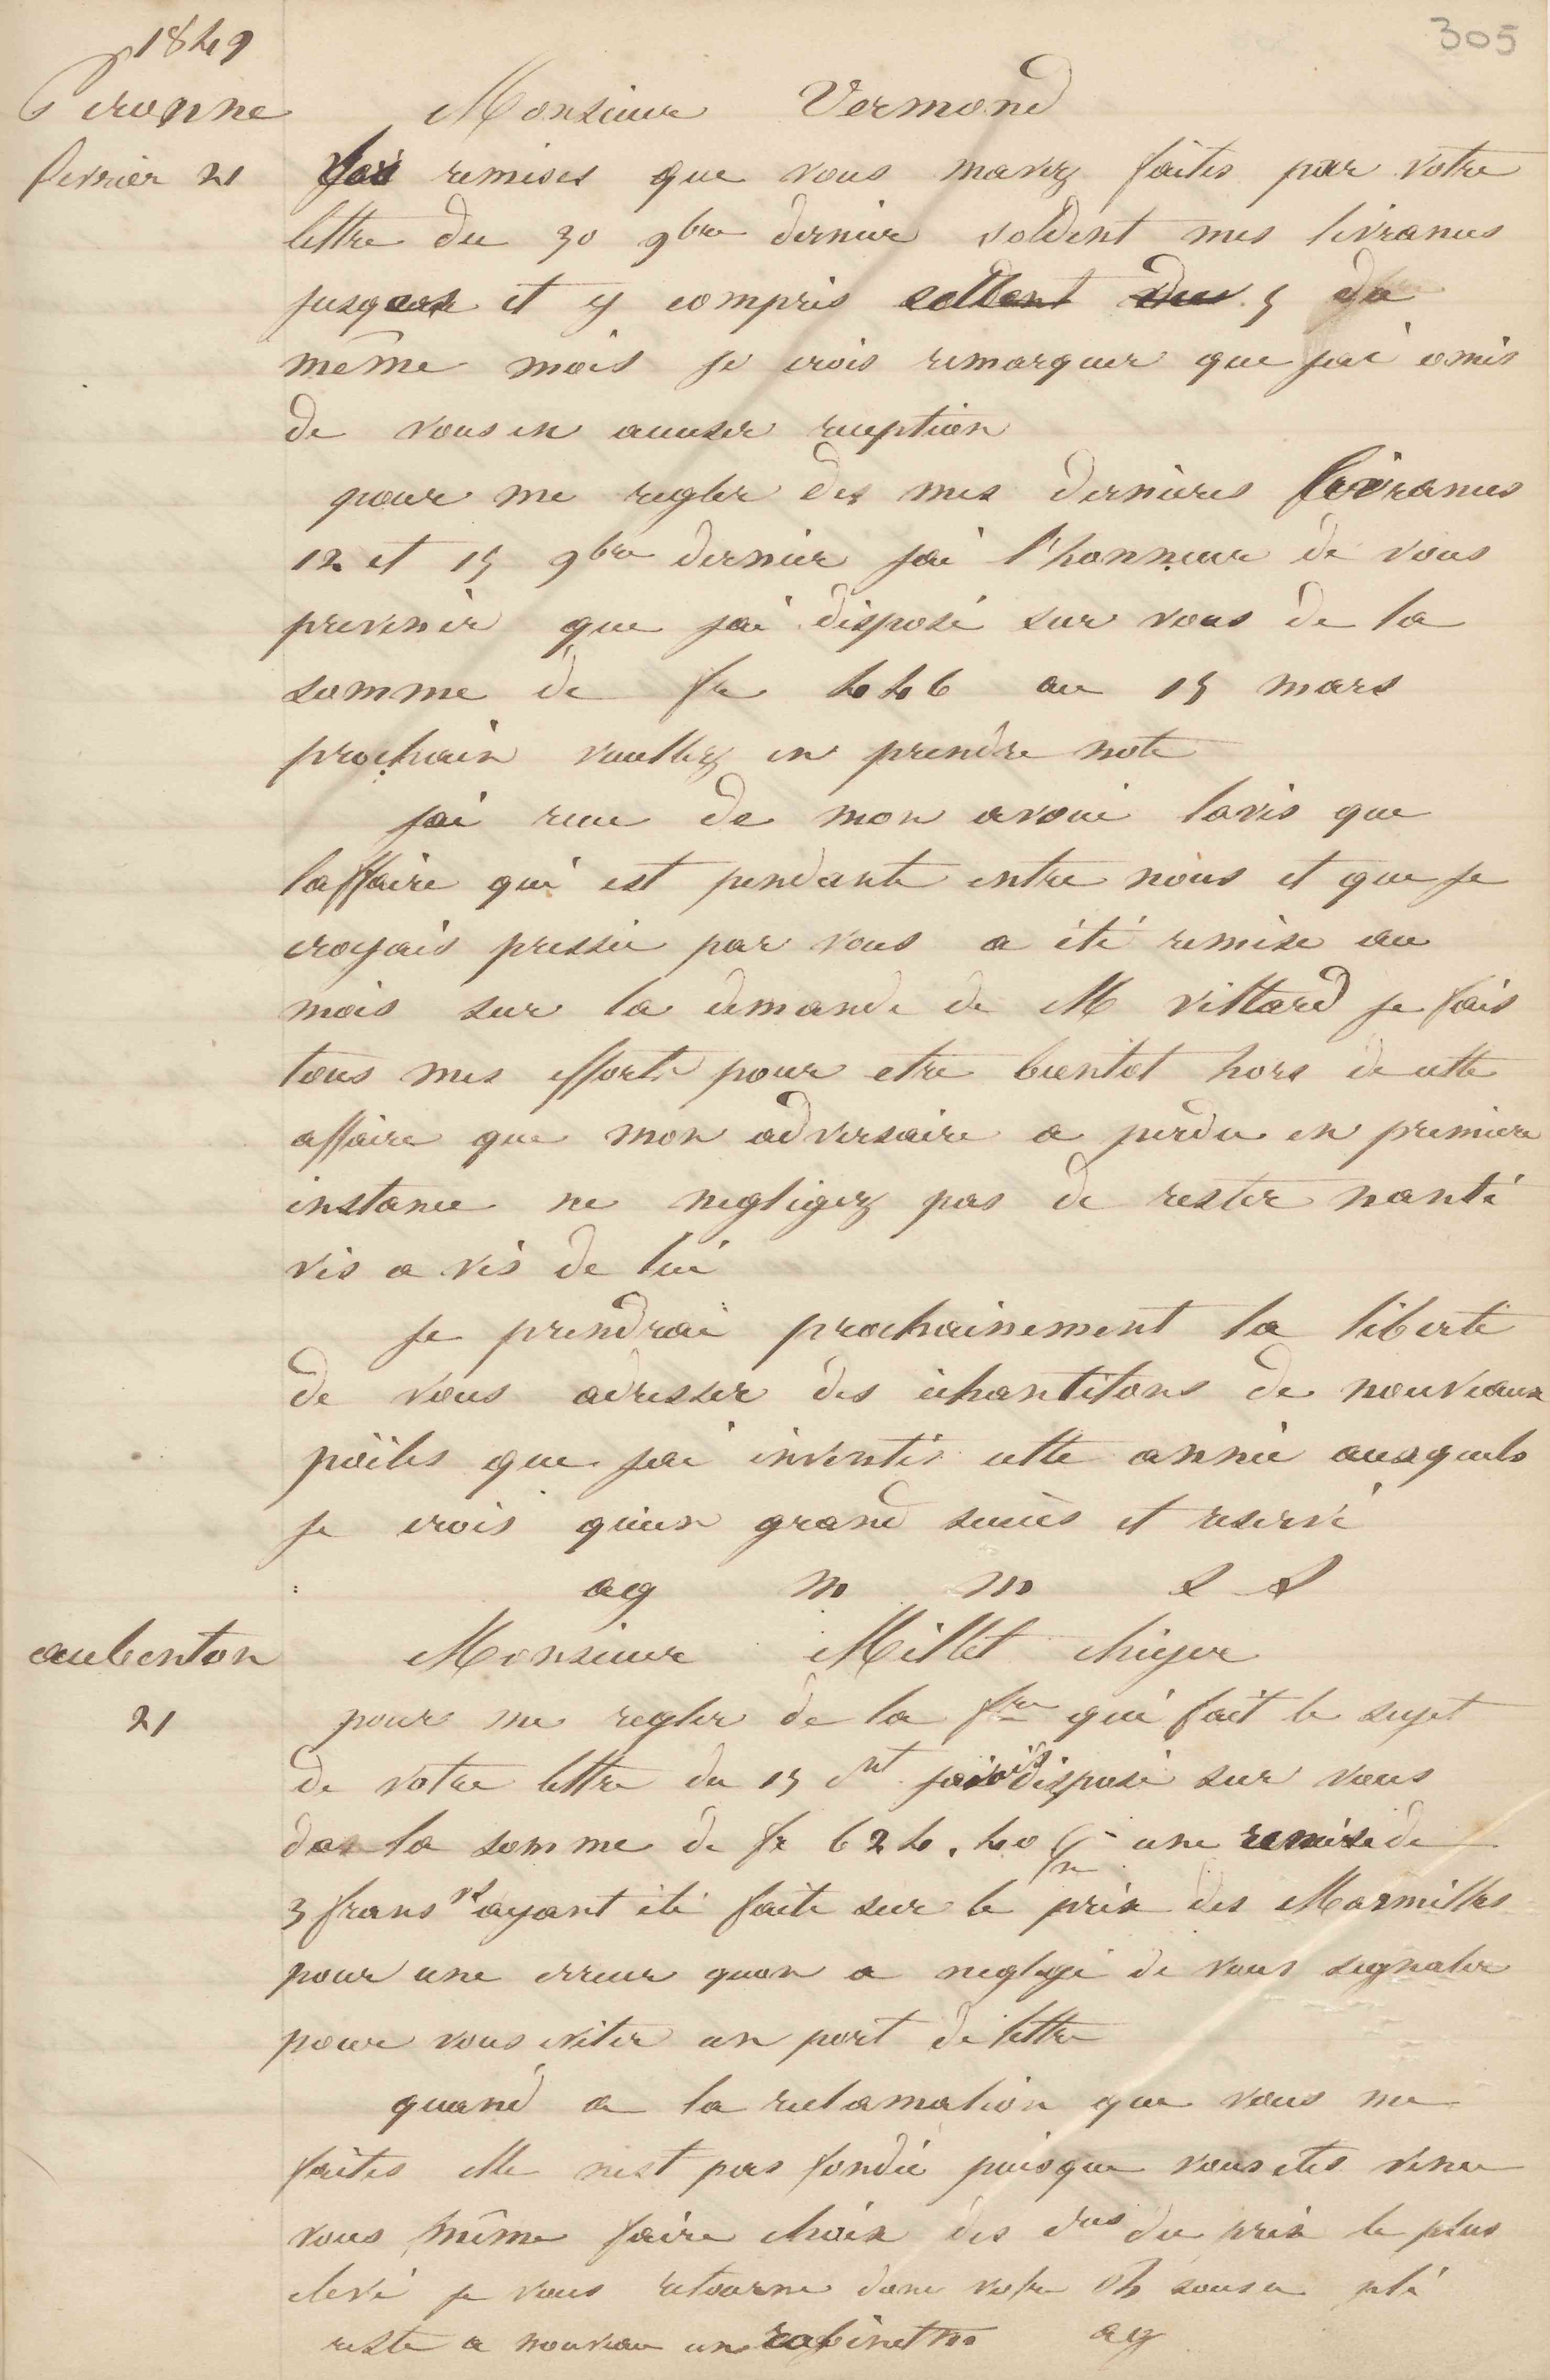 305
1849
Peronne
fevrier 21
Monsieur Vermond
Les remises que vous mavez faites par votre
lettre du 30 9bre dernier soldent mes livrances
jusque et y compris cellent du 5 du
même mois je crois remarquer que jai omis
de vous en accuser reception
pour me regler des mes dernieres livrances
12 et 15 9bre dernier jai l'honneur de vous
prevenir que jai disposé sur vous de la
somme de fr 446 au 15 mars
prochain veuillez en prendre note
jai recu de mon avoué lavis que
laffaire qui est pendante entre nous et que je
croyais pressée par vous a été remise au
mois sur la demande de M Villard je fais
tous mes efforts pour etre bientot hors de cette
affaire que mon adversaire a perdu en premiere
instance ne negligez pas de rester nanti
vis a vis de lui
je prendrai prochainement la liberté
de vous adresser des échantilons de nouveaux
poëles que jai inventés cette année auxquels
je crois quun grand succès et reservé
ag m m s s
aubenton
21
Monsieur Millet
pour me regler de la fre qui fait le sujet
de votre lettre du 15 ct jai disposé sur vous
de la somme de fr 624.40 une remise de
3 frans ayant été faite sur le prix des Marmilles
pour une erreur quon a negligé de vous signaler
pour vous eviter un port de lettre
quand a la reclamation que vous me
faites elle nest pas fondée puisque vous etes venu
vous même faire choix des du prix le plus
elevé je vous retourne donc votre sous ce pli
reste a nouveau un robinet m ag